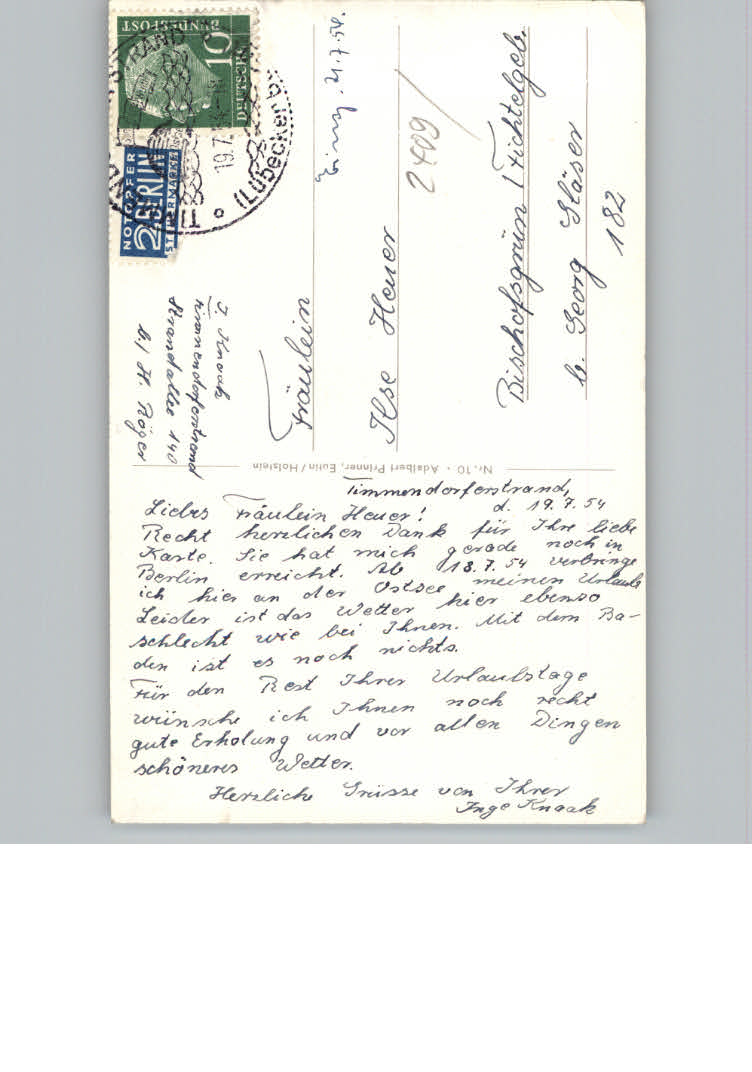 Timmendorferstrand,
d. 19.7.54
Liebes Fräulein Heuer!
Recht herzlichen Dank für Ihre liebe
Karte. Sie hat mich gerade noch in
Berlin erreicht. Ab 18.7.54 verbringe
ich hier an der Ostsee meinen Urlaub
Leider ist das Wetter hier ebenso
schlecht wie bei Ihnen. Mit dem Ba-
den ist es noch nichts.
Für den Rest Ihrer Urlaubstage
wünsche ich Ihnen noch recht
gute Erholung und vor allen Dingen
schöneres Wetter.
Herzliche Grüsse von Ihrer
Inge Knaak
Nr. 10 · Adalbert Prinner, Eutin / Holstein
I. Knaak
Timmendorferstrand
Strandallee 140
b/ H. Röger
Fräulein
Ilse Heuer
Bischofsgrün / Fichtelgeb.
b. Georg Gläser
182
21.7.54.
2409/
DEUTSCHE
BUNDESPOST
10
NOTOPFER
2 BERLIN
STEUERMARKE
19.7.
(Lübecker B